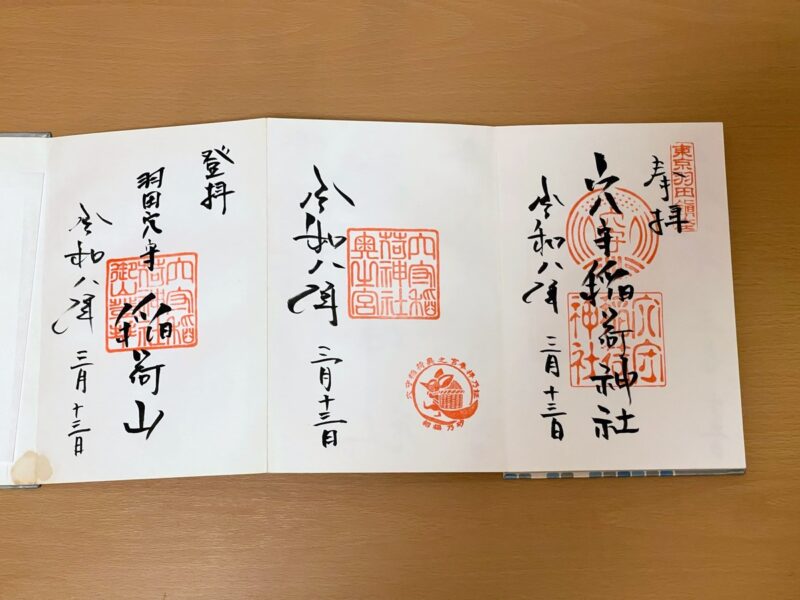 東京羽田鎮座
奉拝
穴守稲荷神社
穴守稲荷神社
令和八年 三月十三日
穴守稲荷神社奥之宮
令和八年 三月十三日
穴守稲荷奥之宮奉拝乃証
登拝
羽田穴守 稲荷山
令和八年 三月十三日